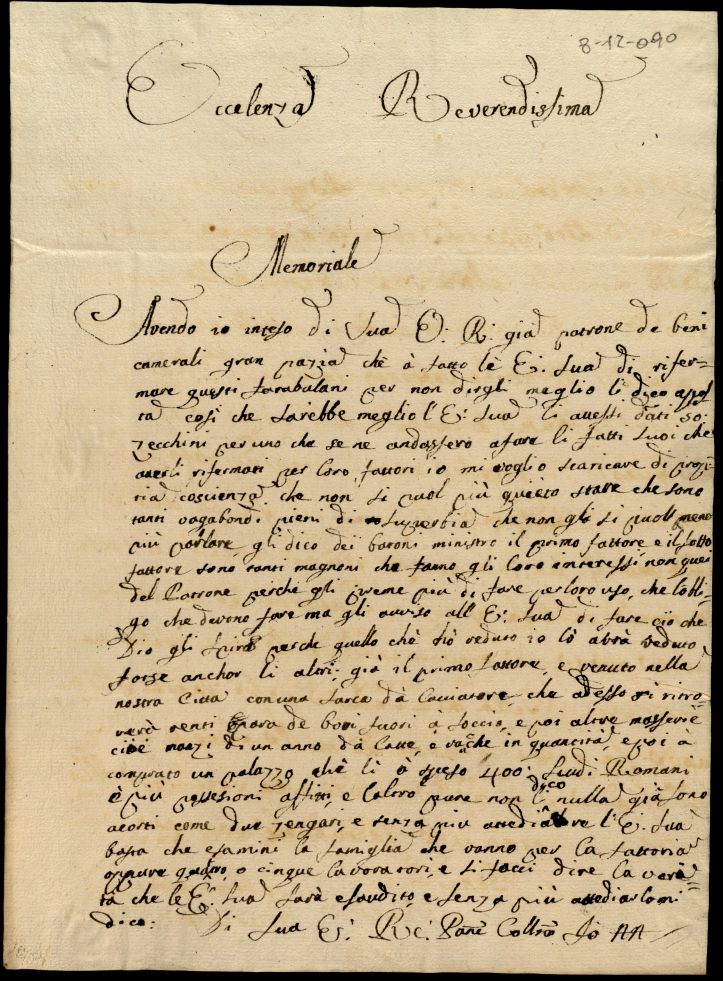 8-12-090
Eccelenza Reverendissima
Memoriale
Avendo io inteso di Sua E: R: già patrone de beni
camerali gran pazia chè à fatto lè E: Sua di rifer=
mare questi farabulani per non dirgli meglio li dico
tà così che sarebbe meglio l'E: Sua li avessi dati 50:
zecchini per uno che se ne andassero afare li fatti suoi che
averli rifermati per loro fattori io mi voglio scaricare di prop=
ria coscienza che non si puol più quieto stare che sono
tanti vagabondi pieni di superbia che non gli si puoll meno
più parlare gli dico dei baroni ministro il primo fattore e il sotto
fattore sono tanti magnoni che fanno gli loro interessi non quei
del Patrone perche gli preme più di fare per loro uso, che l'obli=
go che devono fare ma gli aviso all E: Sua di fare ciò che
Dio gli spira perche quello chè hò veduto io lò avrà veduto
forse anchor li altri, già il primo fattore, e venuto nella
nostra Citta con una sarca dà Cacciatore, che adesso si ritro=
verà venti para de bovi fuori à soccio, e poi altre masserie
cioè manzi di un anno dà latte, e vache in quantità, e poi à
comprato un palazzo chè li ò speso 400: Scudi Romani
è più possesioni affitti, e l'altro pure non li dico nulla già sono
acorti come due zengari, e senza piu attediare l'E: Sua
basta che esamini la famiglia che vanno per la fattoria
oppure quatro, o cinque lavoratori, e si facci dire la veri=
tà che lè E: Sua sarà esaudito, e senza più attediarlo mi
dico: Di Sua E: Rè: Panè Coltrò Jo AA